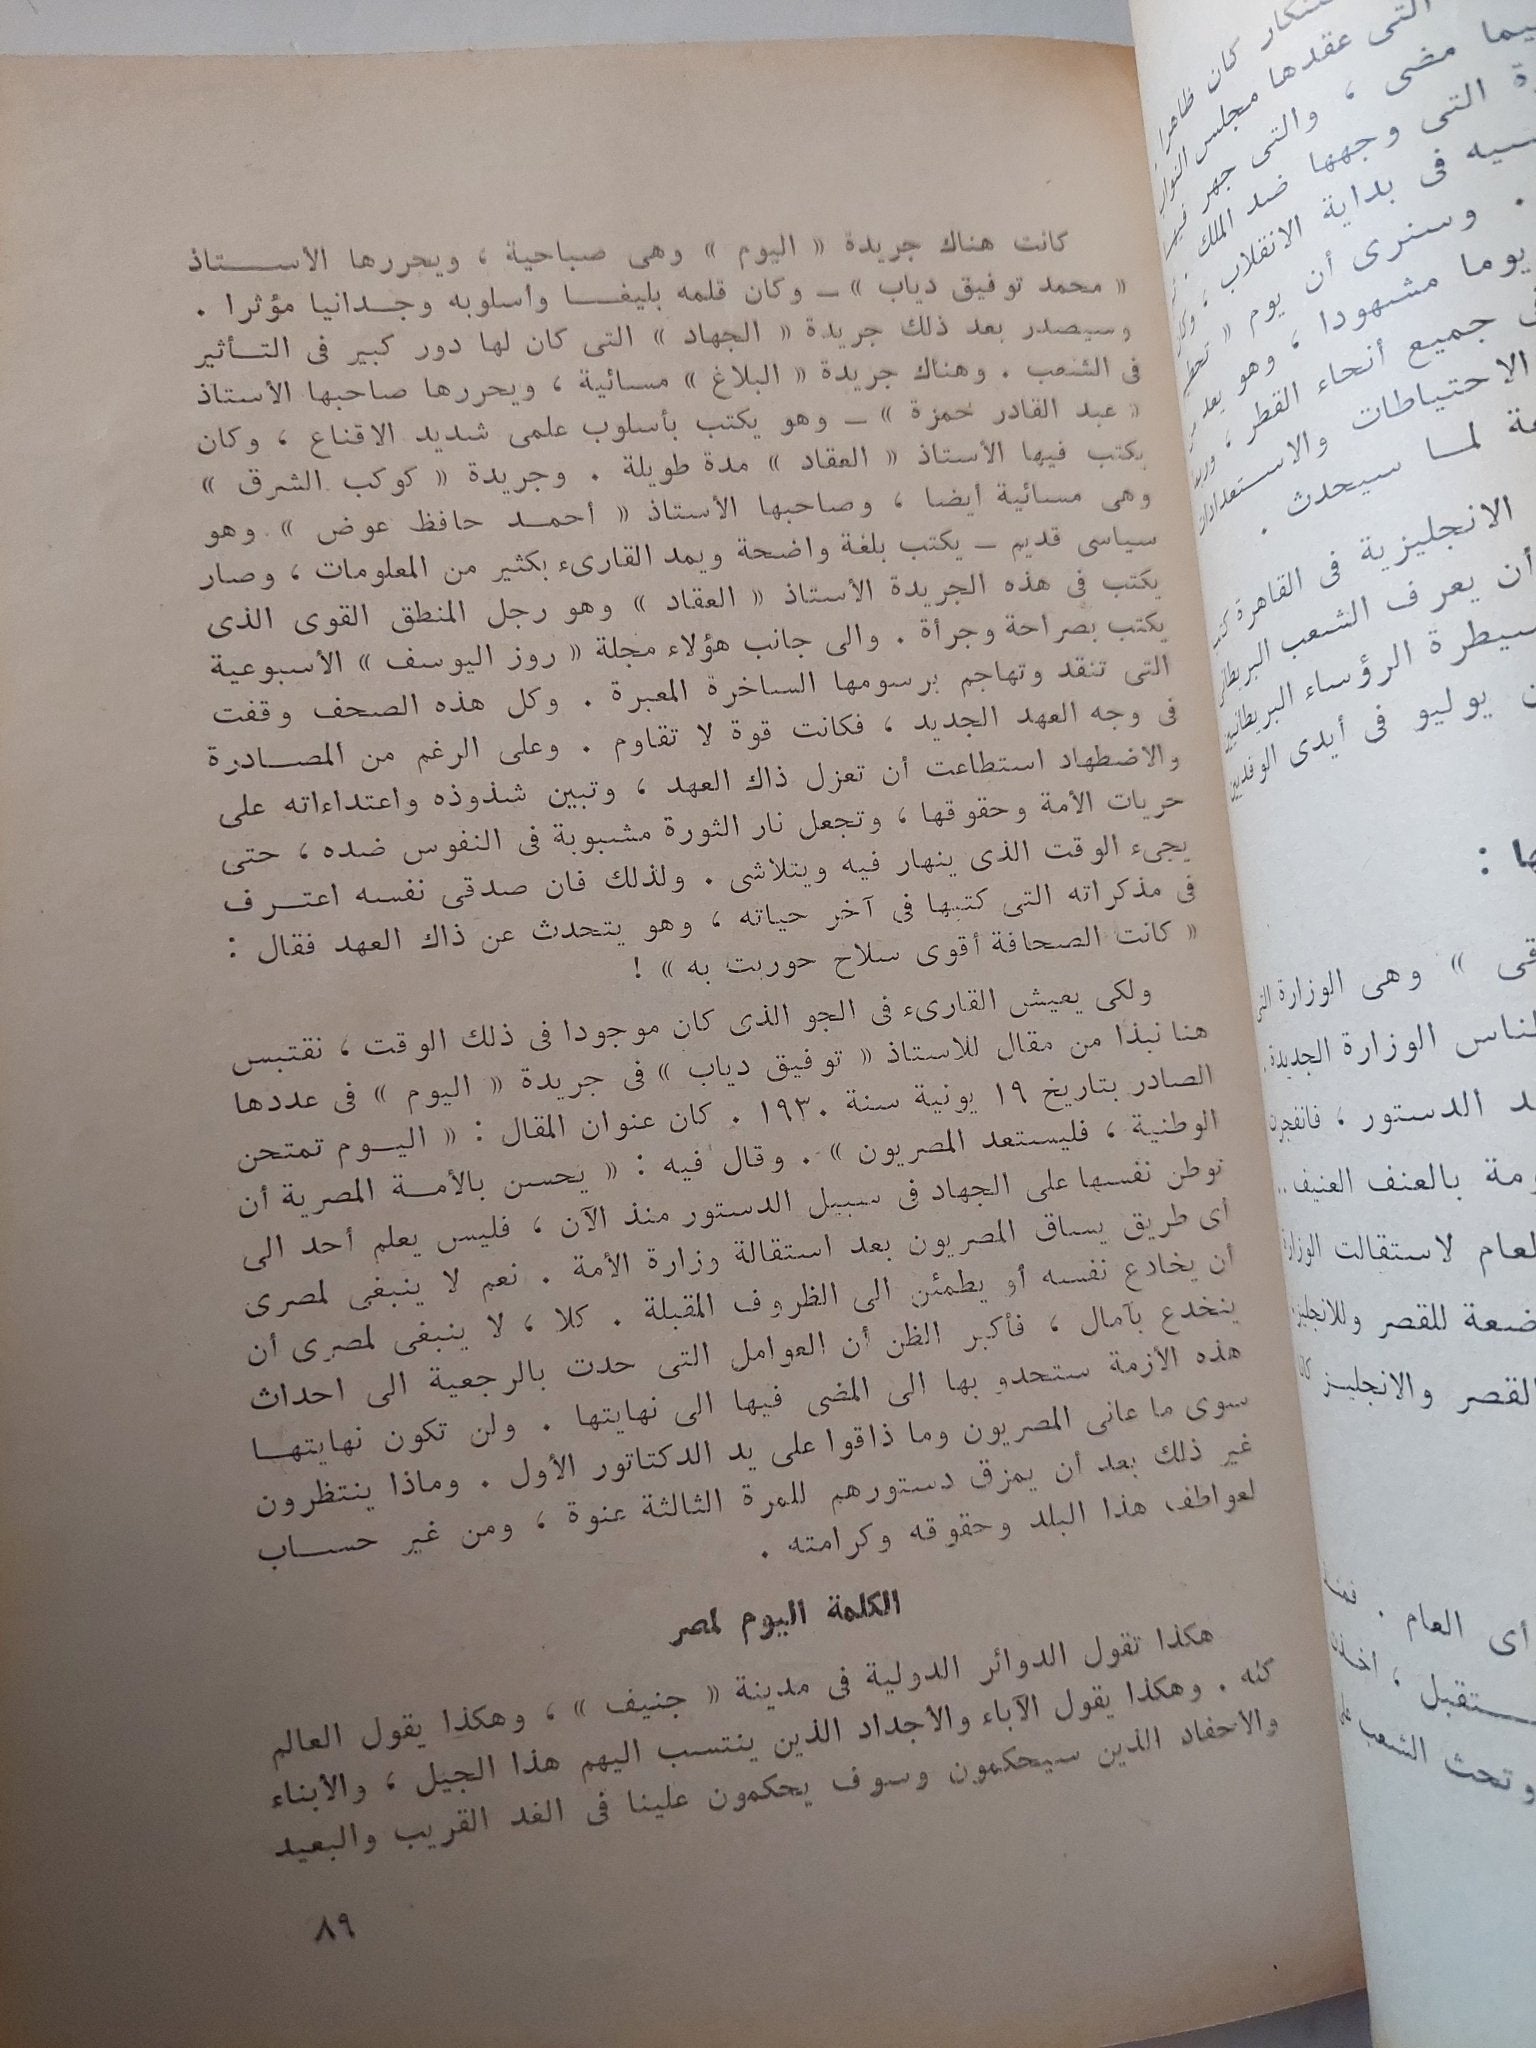 كانت هناك جريدة « اليوم » وهى صباحية ، ويحررها الأستاذ
« محمد توفيق دياب » — وكان قلمه بليغا وأسلوبه وجدانيا مؤثرا .
وسيصدر بعد ذلك جريدة « الجهاد » التى كان لها دور كبير فى التأثير
فى الشعب . وهناك جريدة « البلاغ » مسائية ، ويحررها صاحبها الأستاذ
« عبد القادر حمزة » — وهو يكتب بأسلوب علمى شديد الاقناع ، وكان
يكتب فيها الأستاذ « العقاد » مدة طويلة . وجريدة « كوكب الشرق »
وهى مسائية أيضا ، وصاحبها الأستاذ « أحمد حافظ عوض » وهو
سياسى قديم — يكتب بلغة واضحة ويمد القارىء بكثير من المعلومات ، وصار
يكتب فى هذه الجريدة الأستاذ « العقاد » وهو رجل المنطق القوى الذى
يكتب بصراحة وجرأة . والى جانب هؤلاء مجلة « روز اليوسف » الأسبوعية
التى تنقد وتهاجم برسومها الساخرة المعبرة . وكل هذه الصحف وقفت
فى وجه العهد الجديد ، فكانت قوة لا تقاوم . وعلى الرغم من المصادرة
والاضطهاد استطاعت أن تعزل ذاك العهد ، وتبين شذوذه واعتداءاته على
حريات الأمة وحقوقها ، وتجعل نار الثورة مشبوبة فى النفوس ضده ، حتى
يجىء الوقت الذى ينهار فيه ويتلاشى . ولذلك فان صدقى نفسه اعترف
فى مذكراته التى كتبها فى آخر حياته ، وهو يتحدث عن ذاك العهد فقال :
« كانت الصحافة أقوى سلاح حوربت به » !
ولكى يعيش القارىء فى الجو الذى كان موجودا فى ذلك الوقت ، نقتبس
هنا نبذا من مقال للاستاذ « توفيق دياب » فى جريدة « اليوم » فى عددها
الصادر بتاريخ ١٩ يونية سنة ١٩٣٠ . كان عنوان المقال : « اليوم تمتحن
الوطنية ، فليستعد المصريون » . وقال فيه : « يحسن بالأمة المصرية أن
توطن نفسها على الجهاد فى سبيل الدستور منذ الآن ، فليس يعلم أحد الى
أى طريق يساق المصريون بعد استقالة وزارة الأمة . نعم لا ينبغى لمصرى
أن يخادع نفسه أو يطمئن الى الظروف المقبلة . كلا ، لا ينبغى لمصرى أن
ينخدع بآمال ، فأكبر الظن أن العوامل التى حدت بالرجعية الى احداث
هذه الأزمة ستحدو بها الى المضى فيها الى نهايتها . ولن تكون نهايتها
سوى ما عانى المصريون وما ذاقوا على يد الدكتاتور الأول . وماذا ينتظرون
غير ذلك بعد أن يمزق دستورهم للمرة الثالثة عنوة ، ومن غير حساب
لعواطف هذا البلد وحقوقه وكرامته .
الكلمة اليوم لمصر
هكذا تقول الدوائر الدولية فى مدينة « جنيف » ، وهكذا يقول العالم
كله . وهكذا يقول الآباء والأجداد الذين ينتسب اليهم هذا الجيل ، والأبناء
والأحفاد الذين سيحكمون وسوف يحكمون علينا فى الغد القريب والبعيد
٨٩
كان ظاهرا
التى عقدها مجلس النواب
فيما مضى ، والتى جهر فيها
التى وجهها ضد الملك
فى بداية الانقلاب ،
. وسنرى أن يوم «
يوما مشهودا ، وهو يعد
جميع أنحاء القطر ،
الاحتياطات والاستعدادات
لما سيحدث .
الانجليزية فى القاهرة
أن يعرف الشعب البريطانى
سيطرة الرؤساء البريطانيين
يوليو فى أيدى الوفديين
» وهى الوزارة التى
الناس الوزارة الجديدة
الدستور ، فانفجرت
بالعنف العنيف ..
العام لاستقالت الوزارة
للقصر وللانجليز
القصر والانجليز
العام .
وتحث الشعب